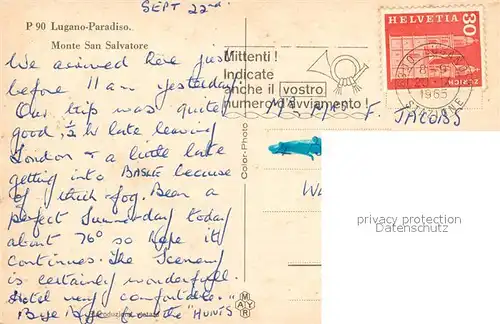 SEPT 22nd
P 90 Lugano-Paradiso.
Monte San Salvatore
We arrived here just
before 11 am yesterday
Our trip was quite
good, ½ hr late leaving
London & a little late
getting into BASLE because
of thick fog. Been a
perfect Summerday today
about 76° so hope it
continues. The Scenery
is certainly wonderful.
Hotel very comfortable.
Bye Bye for the "HUNTS"
Mittenti !
Indicate
anche il vostro
numero d'avviamento !
HELVETIA
30
ZÜRICH
1965
STAZIONE
F. JACOBS
Color-Photo
MAYR
protected Design
Watermark Protection